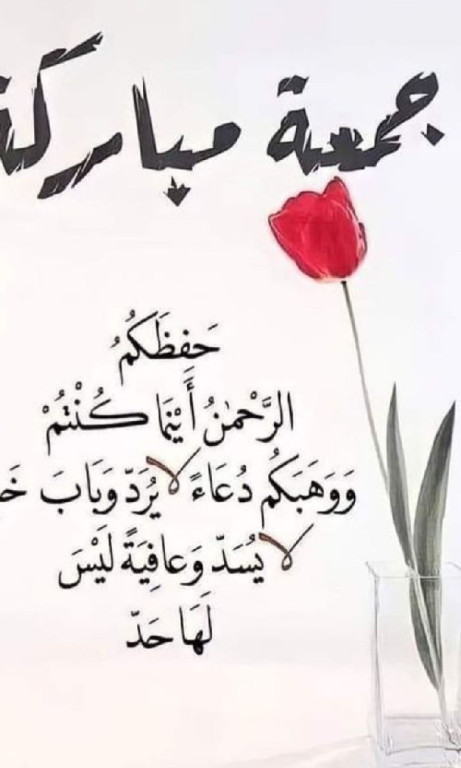 جمعة مباركة
حَفِظَكُمُ
الرَّحْمٰنُ أَيْنَمَا كُنْتُمْ
وَوَهَبَكُم دُعَاءً لا يُرَدّ وَبَابَ
لا يُسَدّ وَعافِيَةً لَيْسَ
لَهَا حَدّ